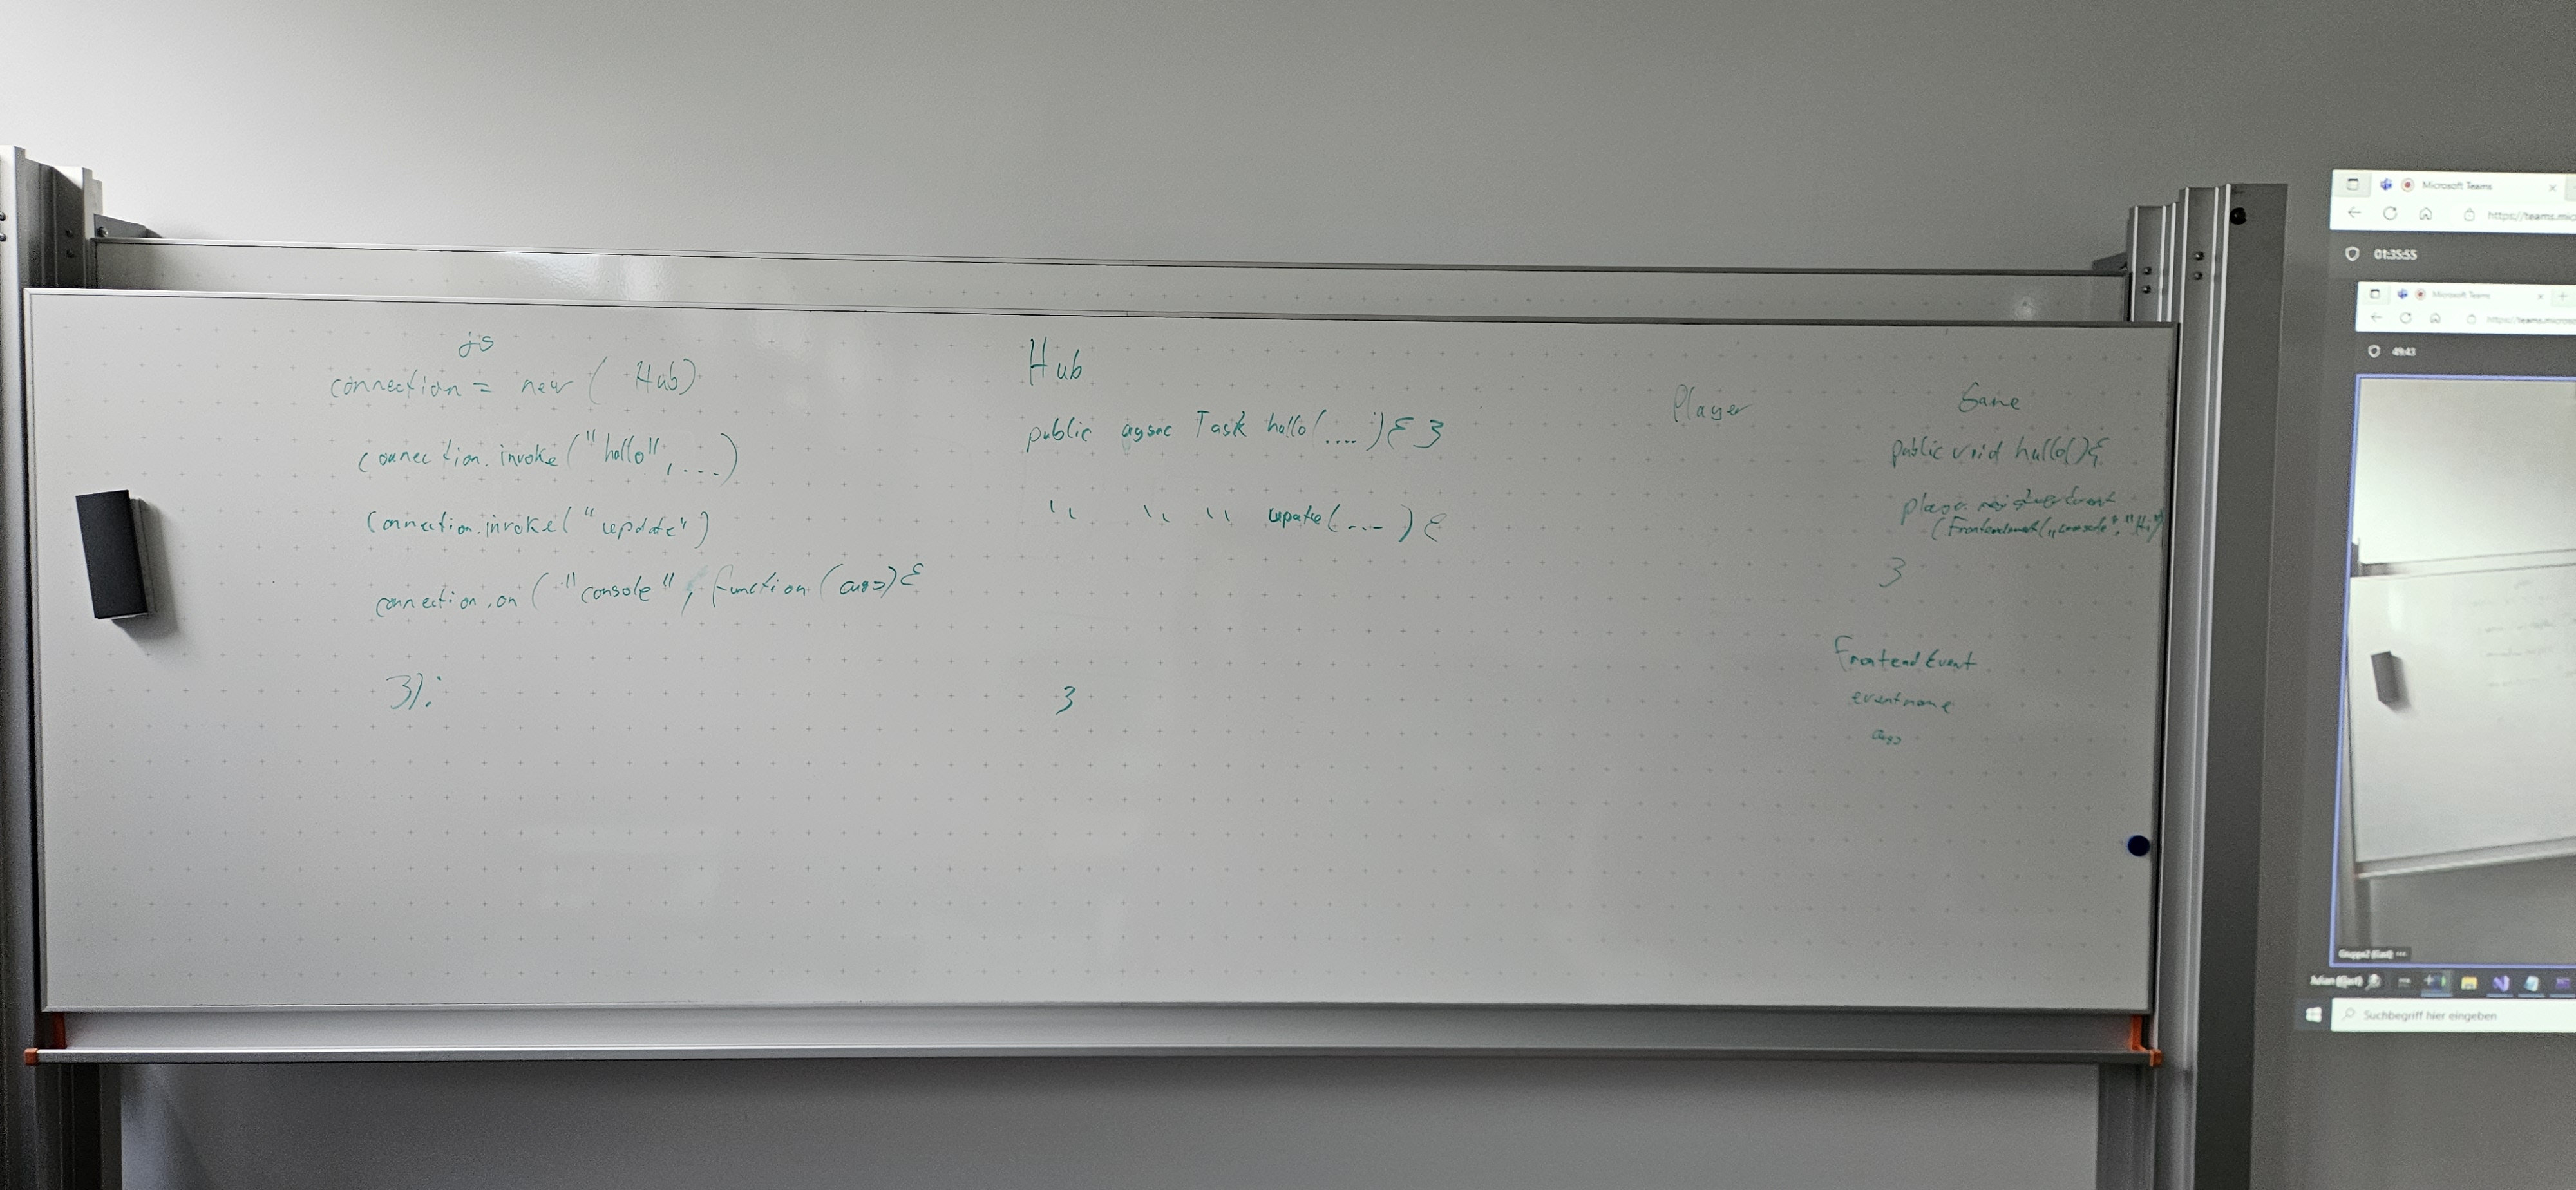 js
connection = new ( Hub)
connection.invoke("hallo", ....)
connection.invoke("update")
connection.on ("console", function (args){
});
Hub
public async Task hallo(....){ }
" " " update(....) {
}
Player
Game
public void hallo(){
player.registerEvent
(FrontendEvent("console", "Hi")
}
FrontendEvent
eventname
args
Microsoft Teams
https://teams.mic
01:35:55
Microsoft Teams
https://teams.micro
49:43
Gruppe2 (Gast)
Julian (Gast)
Suchbegriff hier eingeben